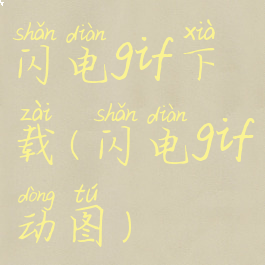 shǎn diàn xià
闪电gif下
zài shǎn diàn
载(闪电gif
dòng tú
动图)